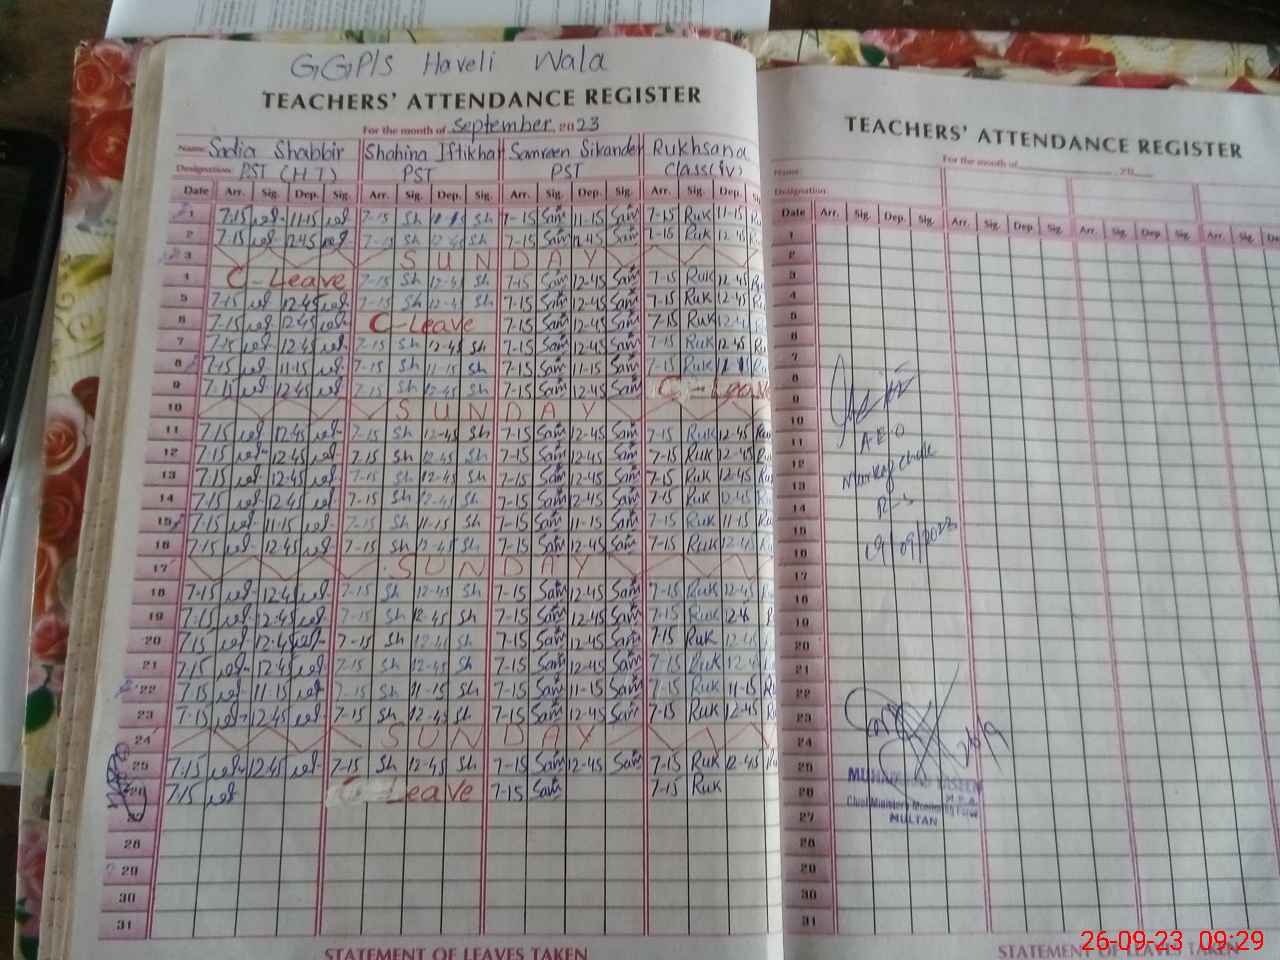 GGP/S Haveli Wala
TEACHERS' ATTENDANCE REGISTER
For the month of September 2023
Name Sadia Shabbir Shahina Iftikhar Samreen Sikander Rukhsana
Designation PST (H.T) PST PST Class(iv)
Date Arr. Sig. Dep. Sig. Arr. Sig. Dep. Sig. Arr. Sig. Dep. Sig. Arr. Sig. Dep.
1 7-15 11-15 7-15 Sh 11-15 Sh 7-15 Sam 11-15 Sam 7-15 Ruk 11-15
2 7-15 12-45 7-15 Sh 12-45 Sh 7-15 Sam 12-45 Sam 7-15 Ruk 12-45
3 SUNDAY
4 C-Leave 7-15 Sh 12-45 Sh 7-15 Sam 12-45 Sam 7-15 Ruk 12-45
5 7-15 12-45 7-15 Sh 12-45 Sh 7-15 Sam 12-45 Sam 7-15 Ruk 12-45
6 7-15 12-45 C-Leave 7-15 Sam 12-45 Sam 7-15 Ruk
7 7-15 12-45 7-15 Sh 12-45 Sh 7-15 Sam 12-45 Sam 7-15 Ruk 12-45
8 7-15 11-15 7-15 Sh 11-15 Sh 7-15 Sam 11-15 Sam 7-15 Ruk
9 7-15 12-45 7-15 Sh 12-45 Sh 7-15 Sam 12-45 Sam C-Leave
10 SUNDAY
11 7-15 12-45 7-15 Sh 12-45 Sh 7-15 Sam 12-45 Sam 7-15 Ruk 12-45
12 7-15 12-45 7-15 Sh 12-45 Sh 7-15 Sam 12-45 Sam 7-15 Ruk 12-45
13 7-15 12-45 7-15 Sh 12-45 Sh 7-15 Sam 12-45 Sam 7-15 Ruk 12-45
14 7-15 12-45 7-15 Sh 12-45 Sh 7-15 Sam 12-45 Sam 7-15 Ruk 12-45
15 7-15 11-15 7-15 Sh 11-15 Sh 7-15 Sam 11-15 Sam 7-15 Ruk 11-15
16 7-15 12-45 7-15 Sh 12-45 Sh 7-15 Sam 12-45 Sam 7-15 Ruk 12-45
17 SUNDAY
18 7-15 12-4 7-15 Sh 12-45 Sh 7-15 Sam 12-45 Sam 7-15 Ruk 12-45
19 7-15 12-45 7-15 Sh 12-45 Sh 7-15 Sam 12-45 Sam 7-15 Ruk
20 7-15 12-45 7-15 Sh 12-45 Sh 7-15 Sam 12-45 Sam 7-15 Ruk
21 7-15 12-45 7-15 Sh 12-45 Sh 7-15 Sam 12-45 Sam 7-15 Ruk
22 7-15 11-15 7-15 Sh 11-15 Sh 7-15 Sam 11-15 Sam 7-15 Ruk 11-15
23 7-15 12-45 7-15 Sh 12-45 Sh 7-15 Sam 12-45 Sam 7-15 Ruk 12-45
24 SUNDAY
25 7-15 12-45 7-15 Sh 12-45 Sh 7-15 Sam 12-45 Sam 7-15 Ruk 12-45
26 7-15 C-Leave 7-15 Sam 7-15 Ruk
28
29
30
31
STATEMENT OF LEAVES TAKEN
TEACHERS' ATTENDANCE REGISTER
For the month of 20
Name
Designation
Date Arr. Sig. Dep. Sig. Arr. Sig. Dep. Sig. Arr. Sig. Dep. Sig. Arr. Sig.
1
2
3
4
5
6
7
8
9
10
11
12
13
14
15
16
17
18
19
20
21
22
23
24
25
26
27
28
29
30
31
A.E.O
19/09/2023
26/9
MULTAN
STATEMENT OF LEAVES TAKEN
26-09-23 09:29